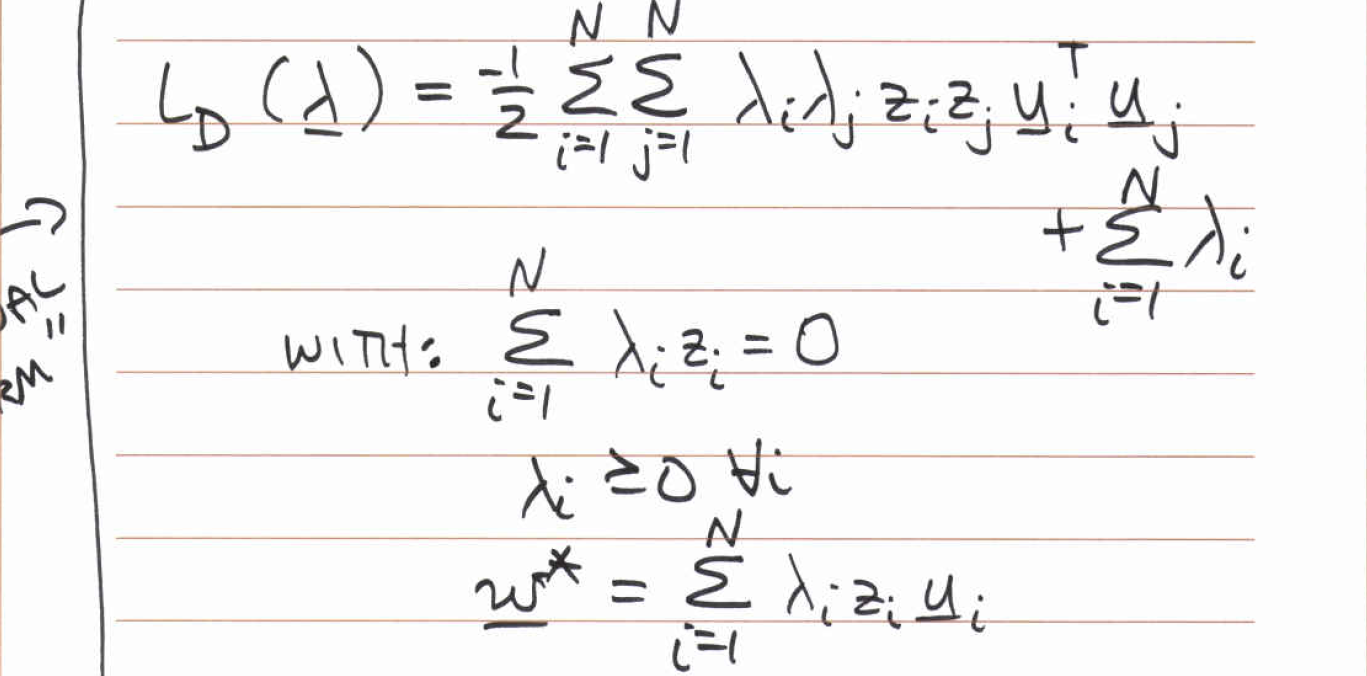 L_D(λ) = -1/2 Σ_{i=1}^{N} Σ_{j=1}^{N} λ_i λ_j z_i z_j u_i^T u_j
+ Σ_{i=1}^{N} λ_i
WITH: Σ_{i=1}^{N} λ_i z_i = 0
λ_i ≥ 0 ∀i
w* = Σ_{i=1}^{N} λ_i z_i u_i